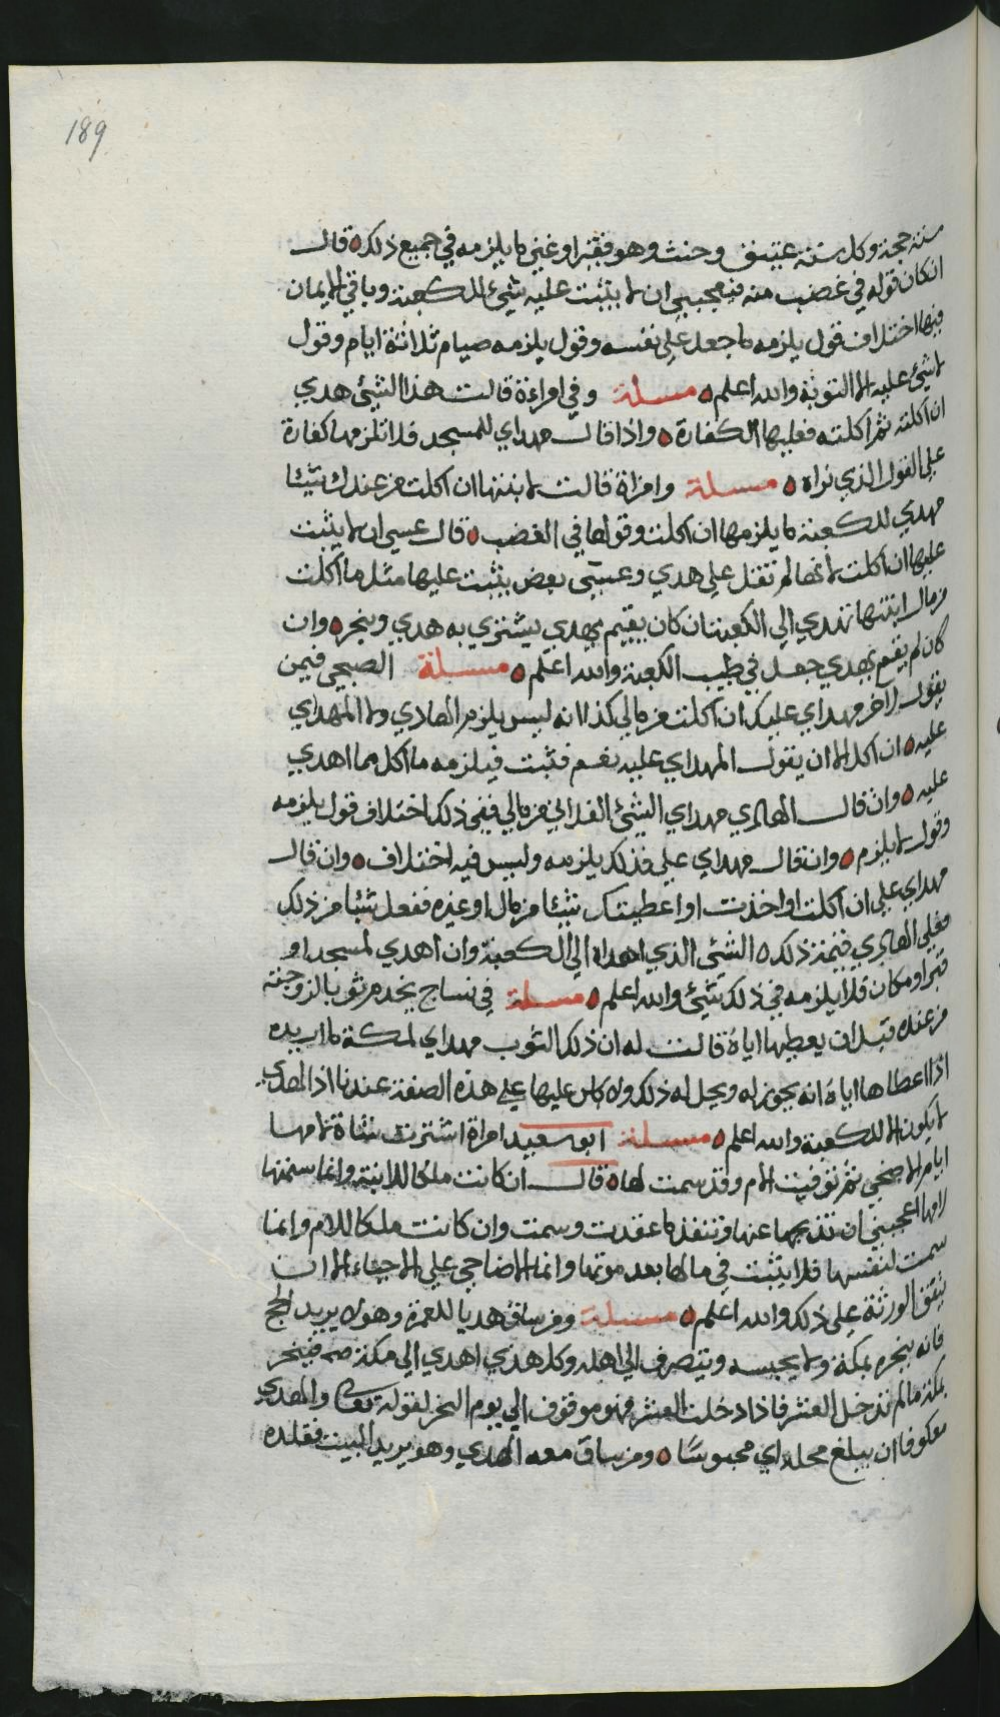 189
سنة حجة وكل سنة عتيق وحنث وهو فقير او غني ما يلزمه في جميع ذلك قال
ان كان قوله في غضب منه فيعجبني ان لا يثبت عليه شيء للكعبة وباقي الايمان
فيها اختلاف قول يلزمه ما جعل على نفسه وقول يلزمه صيام ثلاثة ايام وقول
لا شيء عليه الا التوبة والله اعلم مسئلة وفي امراءة قالت هذا الشيء هدي
ان اكلته ثم اكلته فعليها الكفارة واذا قال مهداي للمسجد فلا تلزمه كفارة
على القول الذي نراه مسئلة وامراة قالت لابنتها ان اكلت من عندك شيئا
مهدي للكعبة ما يلزمها ان اكلت وقولها في الغضب قال عسى ان لا يثبت
عليها ان اكلت لانها لم تقل علي هدي وعسى بعض يثبت عليها مثل ما اكلت
من مال ابنتها تهدي الى الكعبة ان كان يقيم بهدي يشتري به هدي وينحر وان
كان لم يقيم بهدي جعل في طيب الكعبة والله اعلم مسئلة الصبحي فيمن
يقول لاخر مهداي عليك ان اكلت من مالي كذا انه ليس يلزم الهادي ولا المهداي
عليه ان اكل الا ان يقول المهداي عليه نعم فثبت فيلزمه ما اكل مما اهدي
عليه وان قال الهادي مهداي الشيء الفلاني من مالي ففي ذلك اختلاف قول يلزمه
وقول لا يلزم وان قال مهداي علي فذلك يلزمه وليس فيه اختلاف وان قال
مهداي علي ان اكلت او اخذت او اعطيتك شيئا من مال او غيره ففعل شيئا من ذلك
فعلى الهادي قيمة ذلك الشيء الذي اهداه الى الكعبة وان اهدي لمسجد او
قبر او مكان فلا يلزمه في ذلك شيء والله اعلم مسئلة في نساج يخدم ثوبا لزوجته
من عنده قبل ان يعطيها اياه قالت له ان ذلك الثوب مهداي لمكة ما اريده
اذا اعطاها اياه انه يجوز له ويحل له ذلك ولا باس عليها على هذه الصفة عندنا اذ الهدي
لا يكون الا للكعبة والله اعلم مسئلة ابو سعيد امراة اشترت شاة لامها
ايام الاضحى ثم توفيت الام وقد سمت لها قال ان كانت ملكا للابنة وانما سمتها
لامها اعجبني ان تذبحها عنها وتنفذ ما عقدت وسمت وان كانت ملكا للام وانما
سمت لنفسها فلا يثبت في مالها بعد موتها وانما الاضاحي على الاحياء الا ان
يتفق الورثة على ذلك والله اعلم مسئلة ومن ساق هديا للعمرة وهو لا يريد الحج
فانه ينحره بمكة ولا يحبسه وينصرف الى اهله وكل هدي اهدي الى مكة فينحر
بمكة ما لم تدخل العشر فاذا دخلت العشر فهو موقوف الى يوم النحر لقوله تعالى والهدي
معكوفا ان يبلغ محله اي محبوسا ومن ساق معه الهدي وهو يريد البيت فقلده